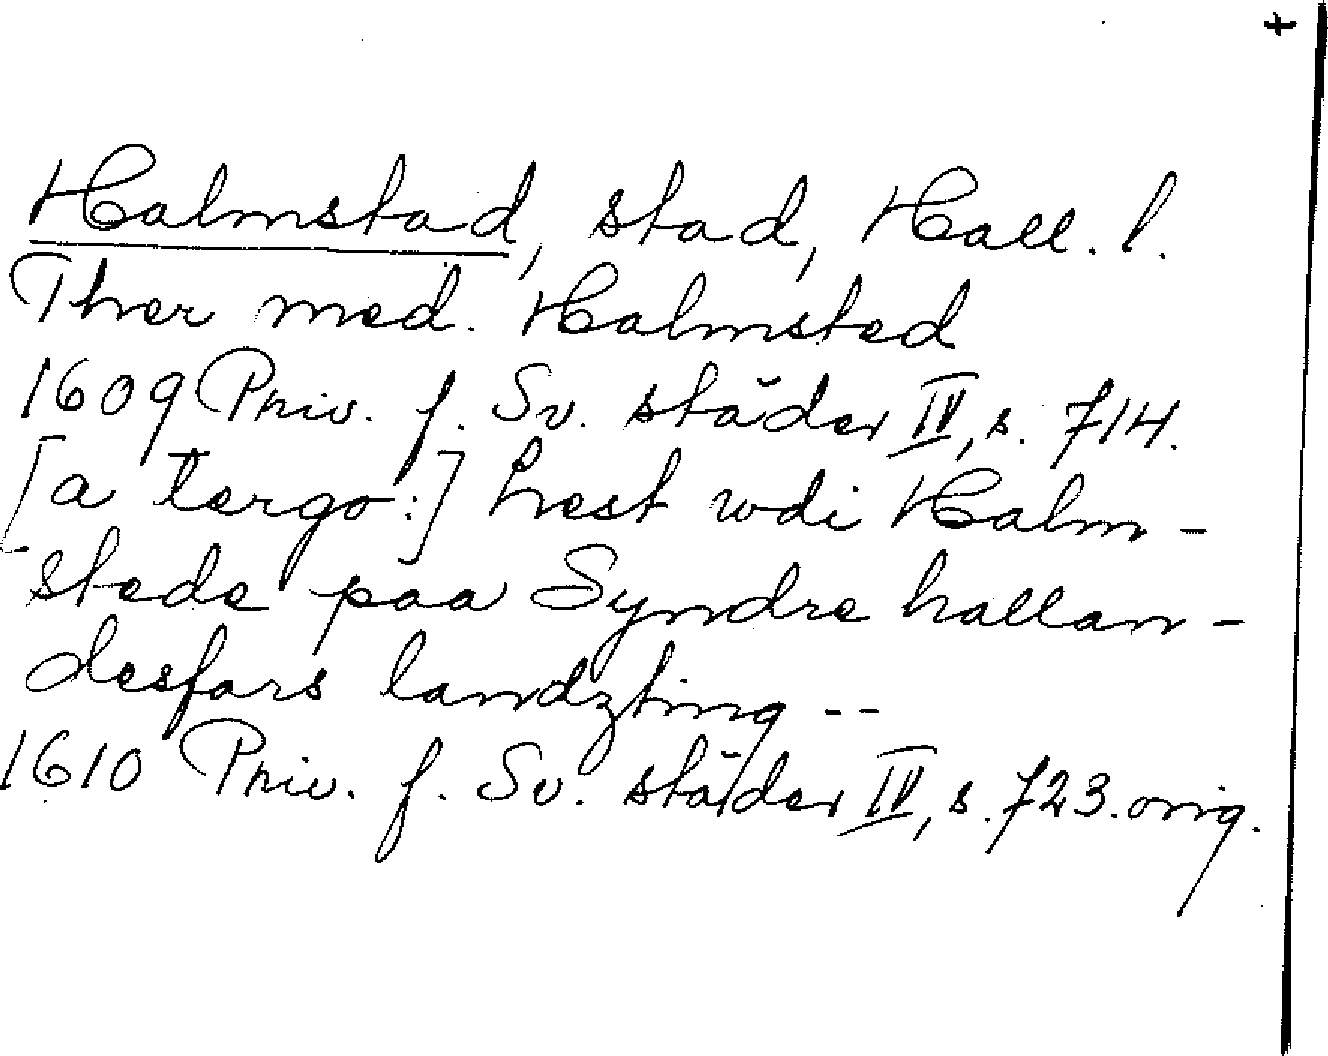 +
Halmstad, stad, Hall. l.
Ther med. Halmsted
1609 Priv. f. Sv. städer IV, s. 714.
[a tergo:] Lest wdi Halm-
stede paa Syndre hallan-
desfars landzting --
1610 Priv. f. Sv. städer IV, s. 723. orig.